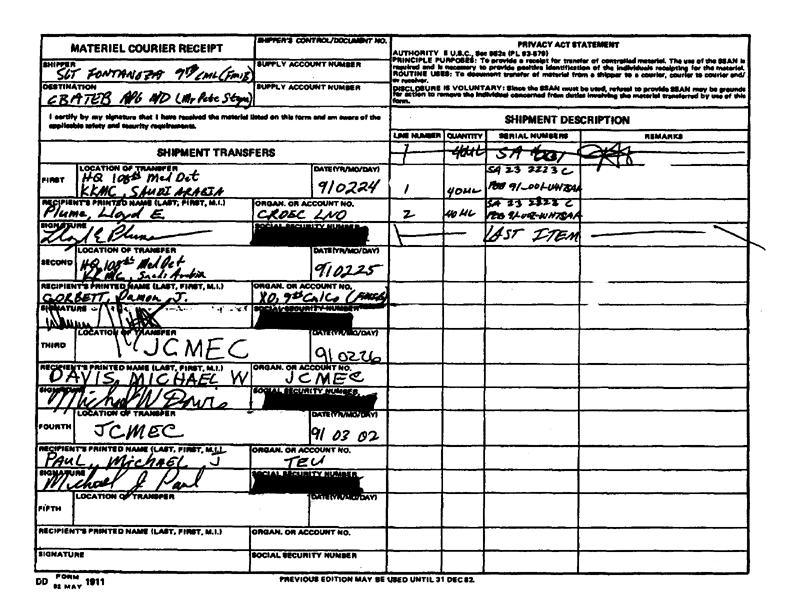 MATERIEL COURIER RECEIPT
SHIPPER'S CONTROL/DOCUMENT NO.
SHIPPER
SGT FONTANOZA 9TH CML (FMIB)
SUPPLY ACCOUNT NUMBER
DESTINATION
CBATEB APG MD (Mr Pete
SUPPLY ACCOUNT NUMBER
I certify by my signature that I have received the material listed on this form and am aware of the
applicable safety and security requirements.
PRIVACY ACT STATEMENT
AUTHORITY 5 U.S.C., Sec 552a (PL 93-579)
PRINCIPLE PURPOSES: To provide a receipt for transfer of controlled material. The use of the SSAN is
required and is necessary to provide positive identification of the individuals receipting for the material.
ROUTINE USES: To document transfer of material from a shipper to a courier, courier to courier and/
or receiver.
DISCLOSURE IS VOLUNTARY: Since the SSAN must be used, refusal to provide SSAN may be grounds
for action to remove the individual concerned from duties involving the material transferred by use of this
form.
SHIPMENT DESCRIPTION
LINE NUMBER QUANTITY SERIAL NUMBERS REMARKS
1 40ML SA
SA 23 2223 C
1 40ML
SA 23 2223 C
2 40 ML
LAST ITEM
SHIPMENT TRANSFERS
FIRST
LOCATION OF TRANSFER
HQ 108th Med Det
KKMC, SAUDI ARABIA
DATE(YR/MO/DAY)
910224
RECIPIENT'S PRINTED NAME (LAST, FIRST, M.I.)
Plume, Lloyd E.
ORGAN. OR ACCOUNT NO.
CRDEC LNO
SIGNATURE
Lloyd E Plume
SOCIAL SECURITY NUMBER
SECOND
LOCATION OF TRANSFER
HQ 108th Med Det
KKMC, Saudi Arabia
DATE(YR/MO/DAY)
910225
RECIPIENT'S PRINTED NAME (LAST, FIRST, M.I.)
GORBETT, Damon J.
ORGAN. OR ACCOUNT NO.
XO, 9th Cml Co (FMIB)
SIGNATURE
SOCIAL SECURITY NUMBER
THIRD
LOCATION OF TRANSFER
JCMEC
DATE(YR/MO/DAY)
910226
RECIPIENT'S PRINTED NAME (LAST, FIRST, M.I.)
DAVIS, MICHAEL W
ORGAN. OR ACCOUNT NO.
JCMEC
SIGNATURE
Michael W Davis
SOCIAL SECURITY NUMBER
FOURTH
LOCATION OF TRANSFER
JCMEC
DATE(YR/MO/DAY)
91 03 02
RECIPIENT'S PRINTED NAME (LAST, FIRST, M.I.)
PAUL, Michael J
ORGAN. OR ACCOUNT NO.
TEU
SIGNATURE
Michael J. Paul
SOCIAL SECURITY NUMBER
FIFTH
LOCATION OF TRANSFER
DATE(YR/MO/DAY)
RECIPIENT'S PRINTED NAME (LAST, FIRST, M.I.)
ORGAN. OR ACCOUNT NO.
SIGNATURE
SOCIAL SECURITY NUMBER
DD FORM 1911
82 MAY
PREVIOUS EDITION MAY BE USED UNTIL 31 DEC 82.